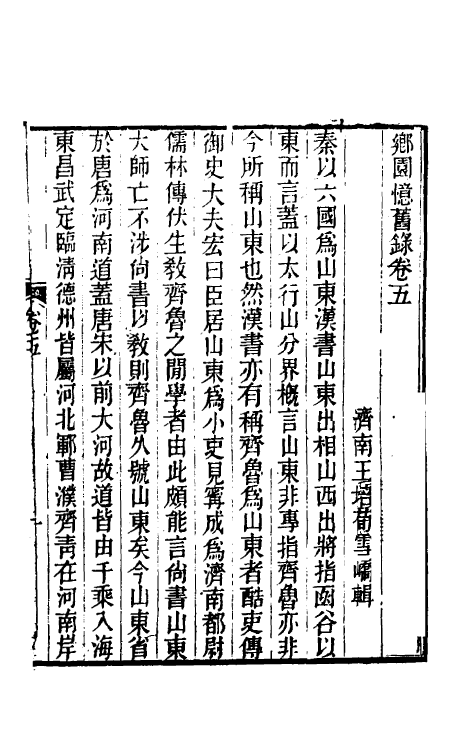 鄉園憶舊錄卷五
濟南王培荀雪嶠輯
秦以六國為山東漢書山東出相山西出將指函谷以
東而言蓋以太行山分界概言山東非專指齊魯亦非
今所稱山東也然漢書亦有稱齊魯為山東者酷吏傳
御史大夫宏曰臣居山東為小吏見寗成為濟南都尉
儒林傳伏生教齊魯之間學者由此頗能言尚書山東
大師亡不涉尚書以教則齊魯久號山東矣今山東省
於唐為河南道蓋唐宋以前大河故道皆由千乘入海
東昌武定臨清德州皆屬河北鄆曹濮齊青在河南岸
卷五
一